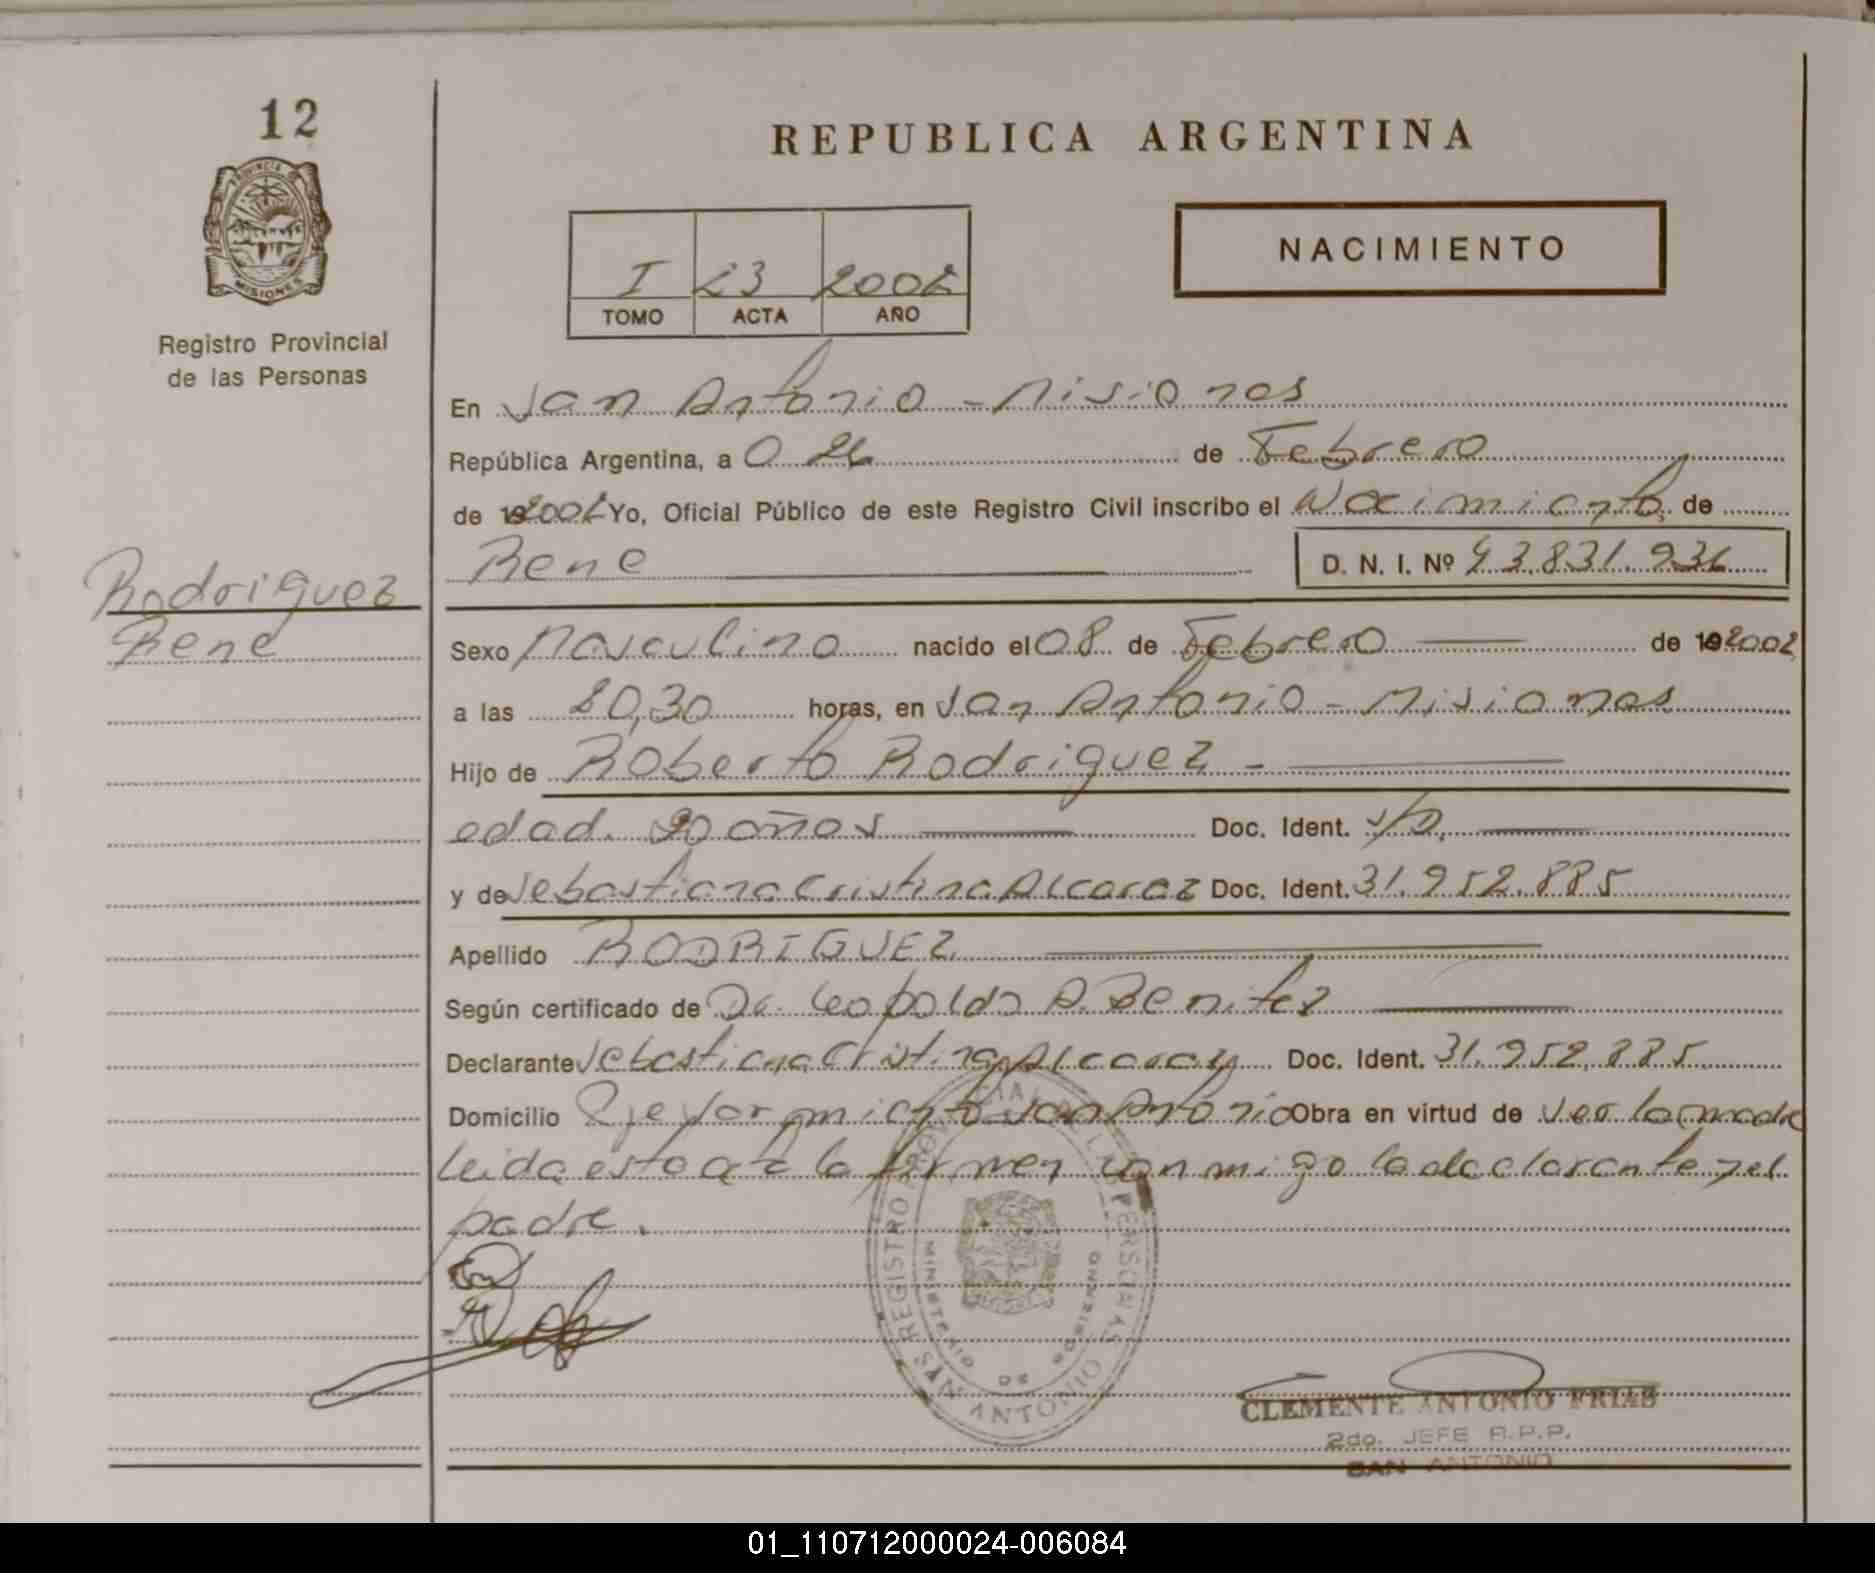 12
REPUBLICA ARGENTINA
PROVINCIA DE
MISIONES
NACIMIENTO
I 23 2002
TOMO ACTA AÑO
Registro Provincial
de las Personas
En San Antonio - Misiones
República Argentina, a 0 26 de Febrero
de 192002 Yo, Oficial Público de este Registro Civil inscribo el Nacimiento, de
Rene D. N. I. Nº 43.831.936
Rodriguez
Rene
Sexo Masculino nacido el 08 de Febrero de 192002
a las 20,30 horas, en San Antonio - Misiones
Hijo de Roberto Rodriguez -
edad. 20 años Doc. Ident. s/D.
y de Sebastiana Cristina Alcaraz Doc. Ident. 31.952.885
Apellido RODRIGUEZ
Según certificado de Dr. Leopoldo A. Benitez
Declarante Sebastiana Cristina Alcaraz Doc. Ident. 31.952.885
Domicilio San Antonio Obra en virtud de ser la madre
Leida esta acta la firman conmigo la declarante y el
padre.
REGISTRO PROVINCIAL DE LAS PERSONAS
MINISTERIO DE GOBIERNO
SAN ANTONIO
CLEMENTE ANTONIO FRIAS
2do. JEFE R.P.P.
SAN ANTONIO
01_110712000024-006084